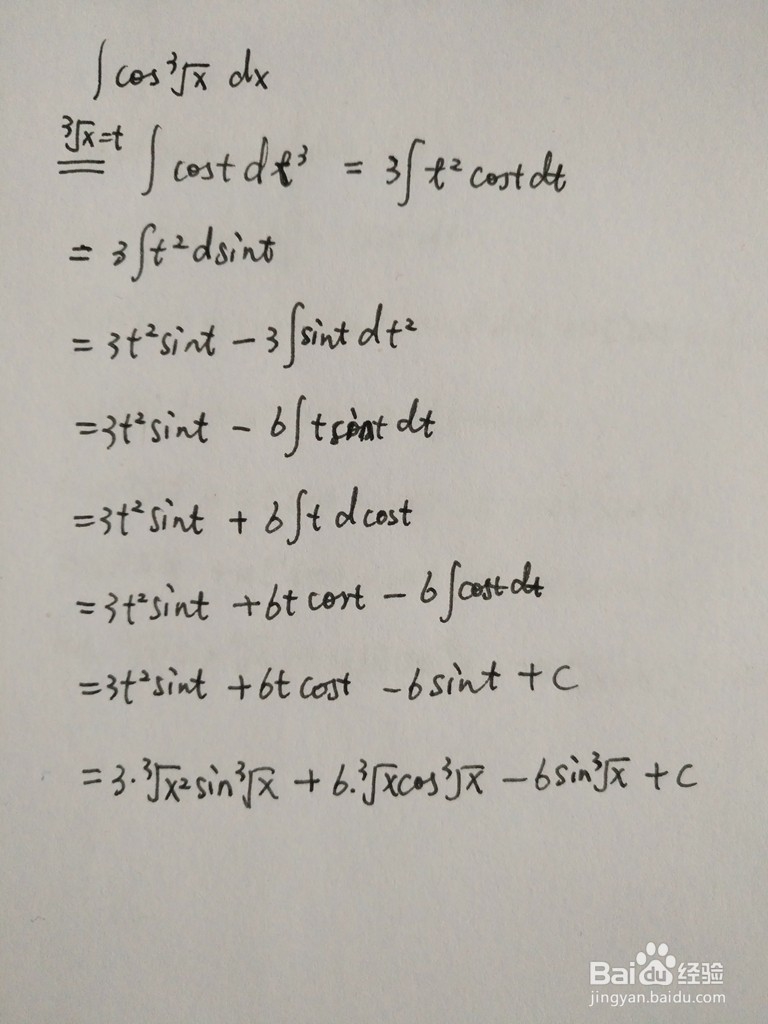 ∫ cos ³√x dx
³√x=t
== ∫ cost dt³ = 3∫t² cost dt
= 3∫t² dsint
= 3t²sint - 3∫sint dt²
=3t²sint - 6∫tsint dt
=3t²sint + 6∫t dcost
=3t²sint +6t cost - 6∫cost dt
=3t²sint +6t cost -6sint + C
=3·³√x² sin³√x + 6·³√x cos³√x - 6sin³√x + C
Baidu经验
jingyan.baidu.com